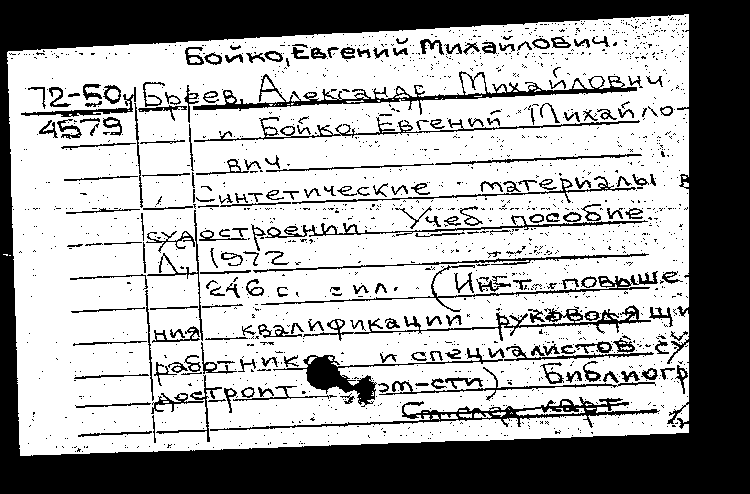 Бойко, Евгений Михайлович.
72-50ч Бреев, Александр Михайлович
4579 и Бойко, Евгений Михайло-
вич.
Синтетические материалы в
судостроении. Учеб. пособие
Л., 1972.
246 с. с ил. (Ин-т повыше-
ния квалификации руководящи
работников и специалистов су
достроит. пром-сти). Библиогр
См. след. карт